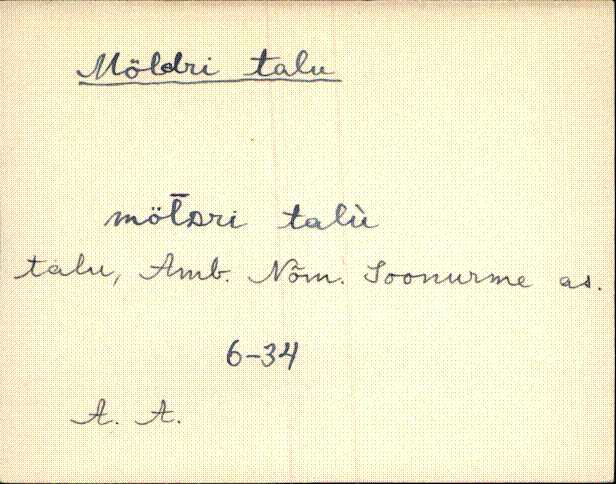 Möldri talu
möl̄ᴅri talù
talu, Amb. Nõm. Soonurme as.
6-34
A. A.